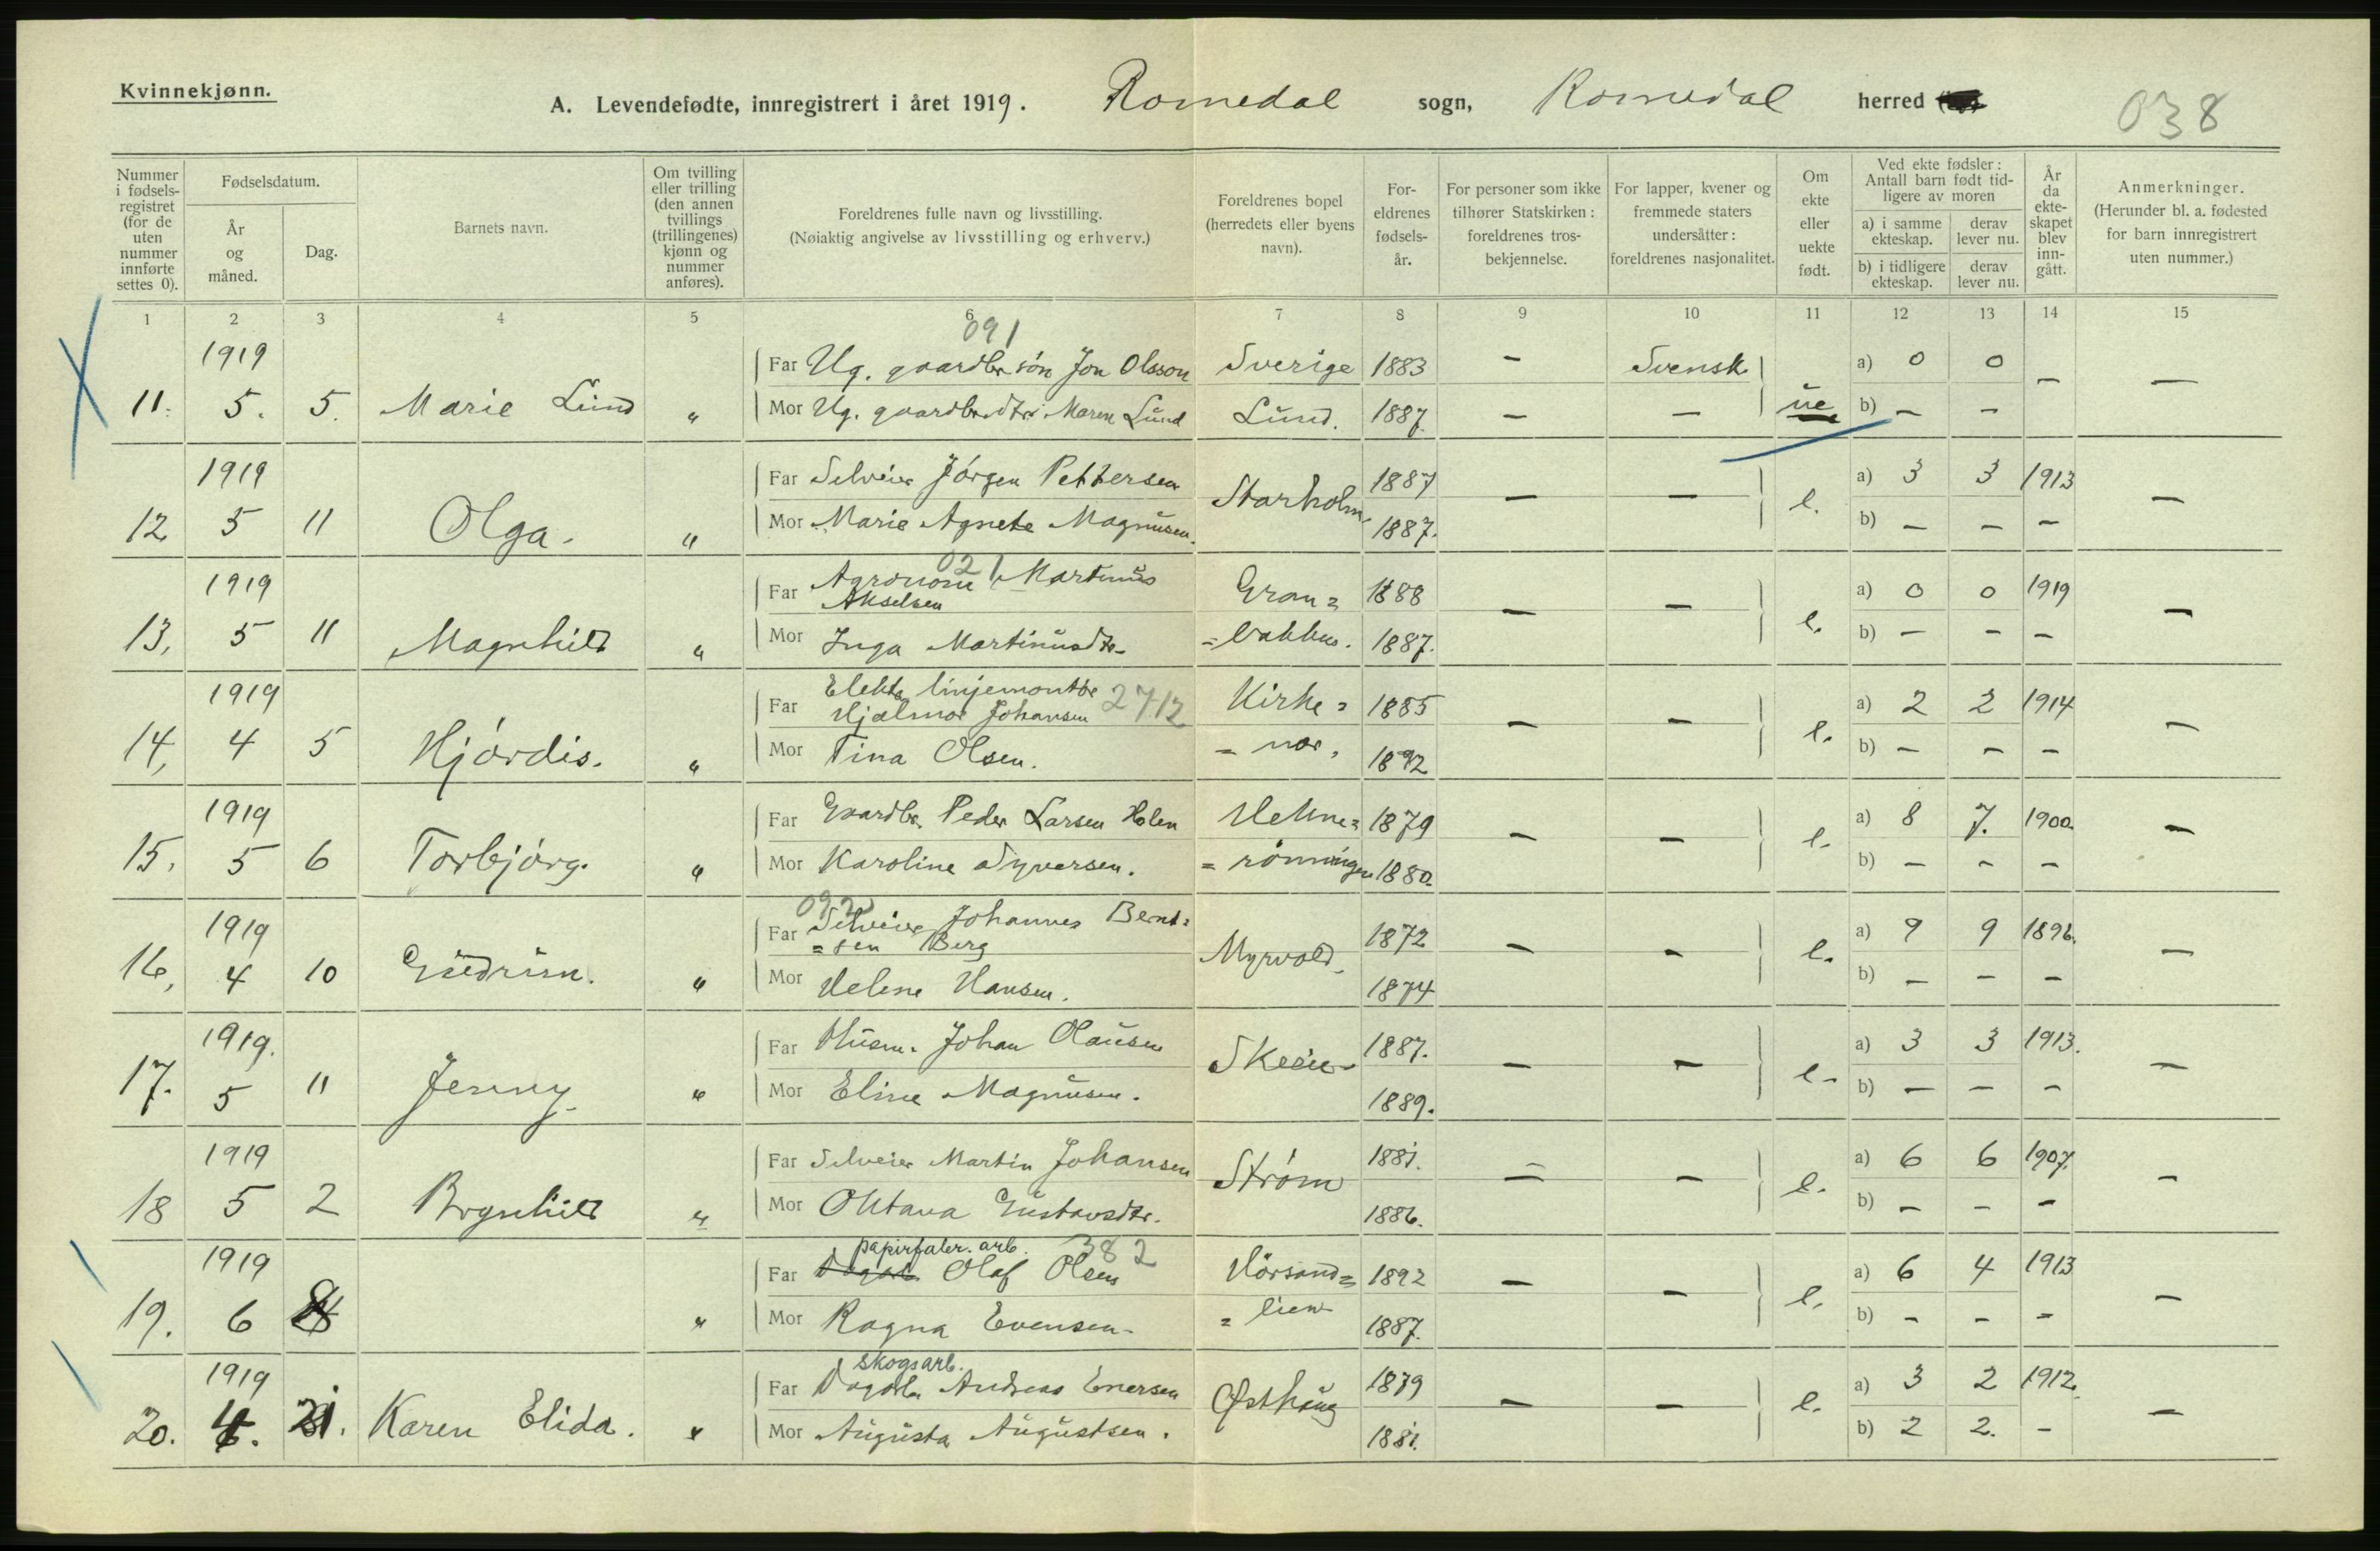 Kvinnekjønn.
A. Levendefødte, innregistrert i året 1919. Romedal sogn, Romedal herred
038
Nummer i fødselsregistret (for de uten nummer innførte settes 0).
Fødselsdatum.
År og måned.
Dag.
Barnets navn.
Om tvilling eller trilling (den annen tvillings (trillingenes) kjønn og nummer anføres).
Foreldrenes fulle navn og livsstilling.
(Nøiaktig angivelse av livsstilling og erhverv.)
Foreldrenes bopel (herredets eller byens navn).
Foreldrenes fødselsår.
For personer som ikke tilhører Statskirken: foreldrenes trosbekjennelse.
For lapper, kvener og fremmede staters undersåtter: foreldrenes nasjonalitet.
Om ekte eller uekte født.
Ved ekte fødsler: Antall barn født tidligere av moren
a) i samme ekteskap. derav lever nu.
b) i tidligere ekteskap. derav lever nu.
År da ekteskapet blev inngått.
Anmerkninger.
(Herunder bl. a. fødested for barn innregistrert uten nummer.)
1 2 3 4 5 6 7 8 9 10 11 12 13 14 15
091
1919 Far Ug. gaardbr. søn Jon Olsson Sverige 1883 - Svensk a) 0 0 -
11. 5. 5. Marie Lund " Mor Ug. gaardbr.dtr. Maren Lund Lund. 1887. - - ue b) - - -
1919 Far Selveier Jörgen Pettersen Starholm. 1887 a) 3 3 1913
12 5 11 Olga. " Mor Marie Agnete Magnusen. 1887. - - e. b) - - - -
021
1919 Far Agronom Martinus Akselsen Gran= 1888 a) 0 0 1919
13, 5 11 Magnhild " Mor Inga Martinusdtr. =bakken. 1887. - - e. b) - - - -
1919 Far Elektr. linjemontør Hjalmar Johansen 2712 Kirke= 1885 a) 2 2 1914
14, 4 5 Hjördis. " Mor Tina Olsen. 1892 - - e. b) - - - -
1919 Far Gaardbr. Peder Larsen Holen 1879 a) 8 7. 1900.
15. 5 6 Torbjörg. " Mor Karoline Syversen. =rönningen 1880. - - e. b) - - - -
092
1919 Far Selveier Johannes Bernt= =sen Berg Myrvold 1872 a) 9 9 1896.
16, 4 10 Gudrun. " Mor Helene Hansen. 1874 - - e. b) - - - -
1919. Far Husm. Johan Olausen 1887. a) 3 3 1913.
17. 5 11 Jenny " Mor Eline Magnusen. 1889. - - e. b) - - - -
1919 Far Selveier Martin Johansen Ström 1881. a) 6 6 1907.
18 5 2 Brynhild " Mor Oktava Gustavsdtr. 1886. - - e. b) - - - -
papirfabr. arb. 382
1919 Far Olaf Olsen Hörsand= 1892 a) 6 4 1913
19. 6 " Mor Ragna Evensen. =lien 1887. - - e. b) - - - -
skogsarb.
1919 Far Dagarb. Andreas Enersen Østhaug 1879 a) 3 2 1912.
20. 4. 21. Karen Elida. " Mor Augusta Augustsen. 1881. - - e. b) 2 2. - -